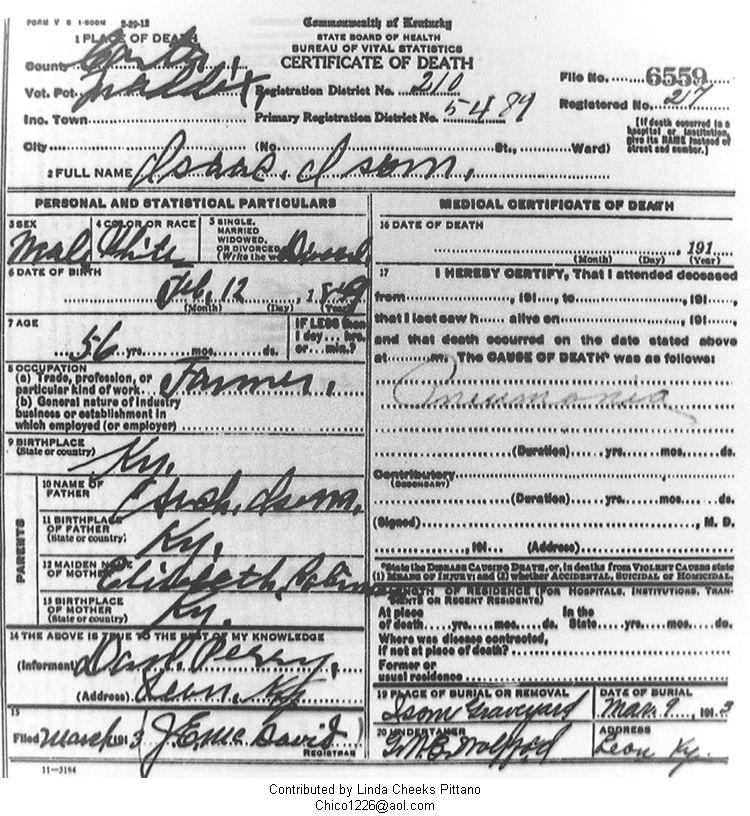 FORM V S 1-500M 2-29-12
Commonwealth of Kentucky
STATE BOARD OF HEALTH
BUREAU OF VITAL STATISTICS
CERTIFICATE OF DEATH
1 PLACE OF DEATH
County Carter,
Vot. Pct.
Inc. Town
Registration District No. 210
Primary Registration District No. 5489
File No. 6559
Registered No. 217
[If death occurred in a hospital or institution, give its NAME instead of street and number.]
City (No St., Ward)
2 FULL NAME Isaac. Isom.
PERSONAL AND STATISTICAL PARTICULARS
3 SEX Male
4 COLOR OR RACE White
5 SINGLE, MARRIED WIDOWED, OR DIVORCED
6 DATE OF BIRTH
Feb, 12, 18
(Month) (Day) (Year)
7 AGE
56 yrs. mos. ds.
IF LESS than 1 day, hrs. or min.?
8 OCCUPATION
(a) Trade, profession, or particular kind of work Farmer.
(b) General nature of industry business or establishment in which employed (or employer)
9 BIRTHPLACE (State or country) Ky.
PARENTS
10 NAME OF FATHER Isom.
11 BIRTHPLACE OF FATHER (State or country) Ky.
12 MAIDEN NAME OF MOTHER Elizabeth,
13 BIRTHPLACE OF MOTHER (State or country) Ky.
14 THE ABOVE IS TRUE TO THE BEST OF MY KNOWLEDGE
(Informant) Perry,
(Address) Leon, Ky
15
Filed March 1913 J E McDavid
REGISTRAR
11-3184
MEDICAL CERTIFICATE OF DEATH
16 DATE OF DEATH
, 191
(Month) (Day) (Year)
17 I HEREBY CERTIFY, That I attended deceased
from , 191 , to , 191 ,
that I last saw h alive on , 191 ,
and that death occurred on the date stated above
at m. The CAUSE OF DEATH* was as follows:
Pneumonia
(Duration) yrs. mos. ds.
Contributory
(SECONDARY)
(Duration) yrs. mos. ds.
(Signed) , M. D.
, 191 (Address)
*State the DISEASE CAUSING DEATH, or, in deaths from VIOLENT CAUSES state (1) MEANS OF INJURY; and (2) whether ACCIDENTAL, SUICIDAL or HOMICIDAL.
LENGTH OF RESIDENCE (FOR HOSPITALS, INSTITUTIONS, TRANSIENTS OR RECENT RESIDENTS)
At place of death yrs. mos. ds. In the State yrs. mos. ds.
Where was disease contracted, if not at place of death?
Former or usual residence
19 PLACE OF BURIAL OR REMOVAL Isom Graveyard
DATE OF BURIAL Mar. 9, 1913
20 UNDERTAKER
ADDRESS Leon Ky.
Contributed by Linda Cheeks Pittano
Chico1226@aol.com